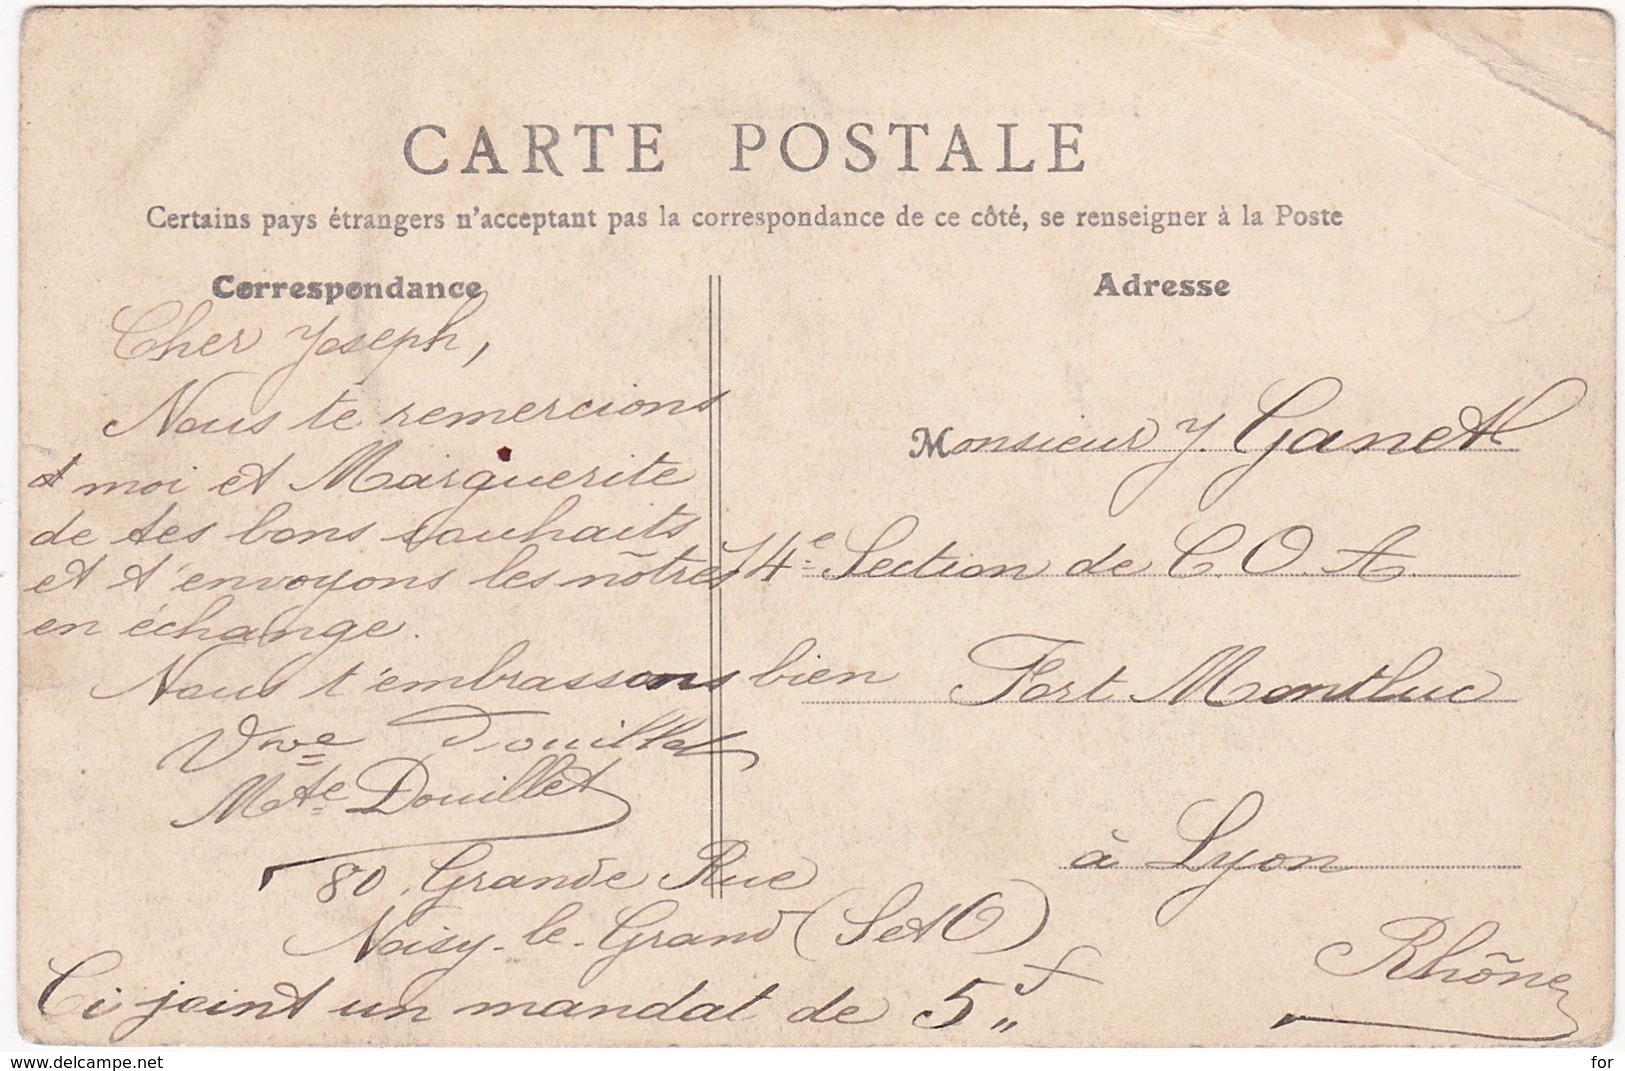 CARTE POSTALE
Certains pays étrangers n'acceptent pas la correspondance de ce côté, se renseigner à la Poste
Correspondance
Cher Joseph,
Nous te remercions
moi et Marguerite
de tes bons souhaits
et t'envoyons les nôtres
en échange.
Nous t'embrassons bien
Vve Douillet
Mte Douillet
80, Grande Rue
Noisy-le-Grand (S et O)
Ci joint un mandat de 5f "
Adresse
Monsieur J. Ganet
14e Section de C.O.A.
Fort Montluc
à Lyon
Rhône
www.delcampe.net
for